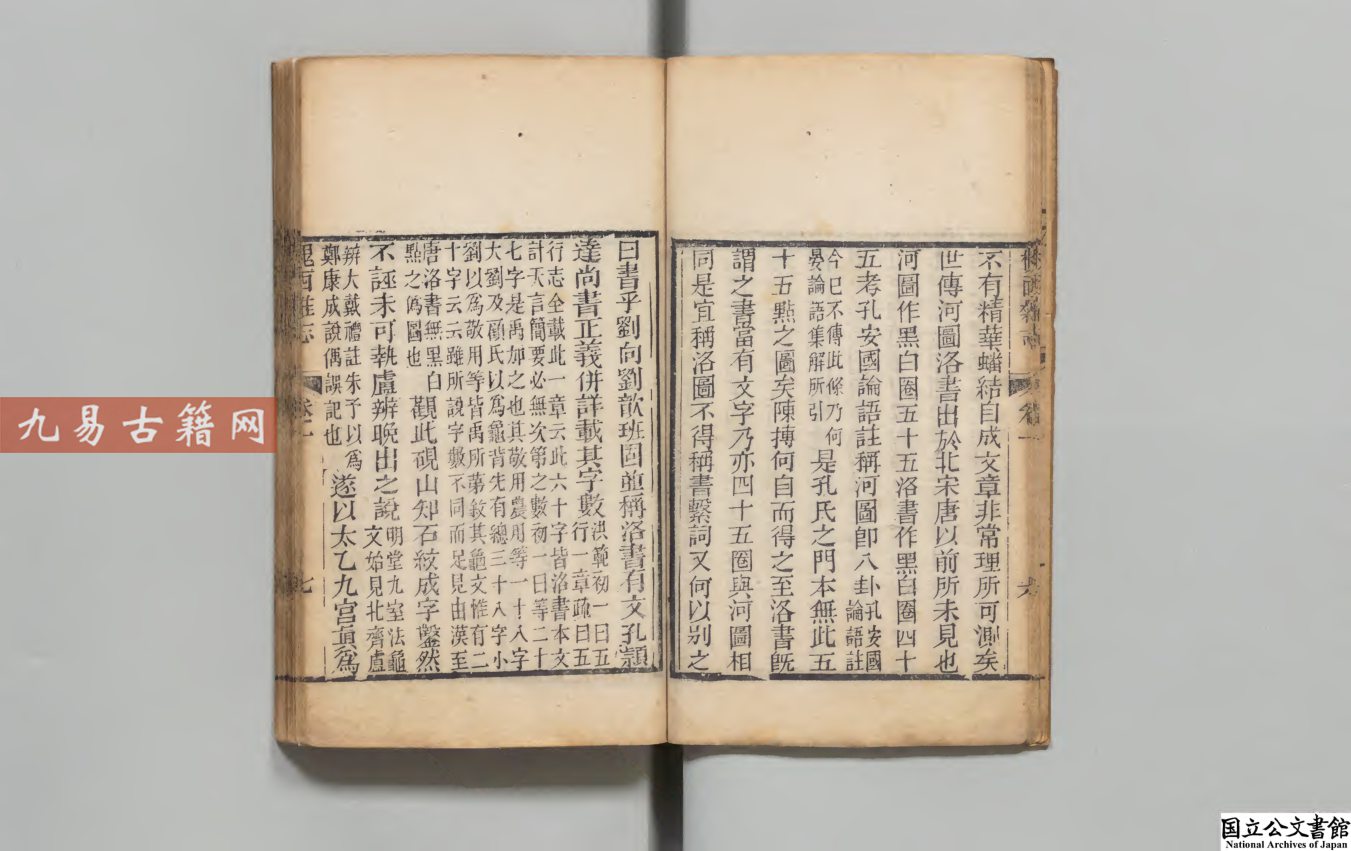 不有精華蟠結自成文章非常理所可測矣
世傳河圖洛書出於北宋唐以前所未見也
河圖作黑白圈五十五洛書作黑白圈四十
五考孔安國論語註稱河圖卽八卦孔安國論語註
今已不傳此條乃何晏論語集解所引是孔氏之門本無此五
十五點之圖矣陳摶何自而得之至洛書旣
謂之書當有文字乃亦四十五圈與河圖相
同是宜稱洛圖不得稱書繫詞又何以別之
曰書乎劉向劉歆班固並稱洛書有文孔穎
達尚書正義併詳載其字數洪範初一曰五行一章疏曰五
行志全載此一章云此六十字皆洛書本文
計天言簡要必無次第之數初一曰等二十
七字是禹加之也其敬用農用等一十八字
大劉及顧氏以爲龜背先有總三十八字小
劉以爲敬用等皆禹所第敘其龜文惟有二
十字云云雖所說字數不同而足見由漢至
唐洛書無黑白點之僞圖也觀此硯山知石紋成字鑿然
不誣未可執盧辨晚出之說明堂九室法龜文始見北齊盧
辨大戴禮註朱子以爲鄭康成說偶誤記也遂以太乙九宮眞爲
卷一
七
九易古籍网
国立公文書館
National Archives of Japan